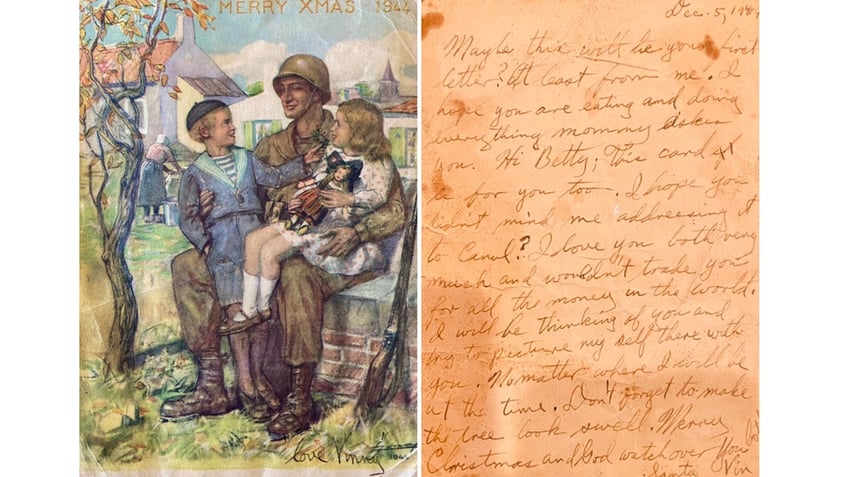 MERRY XMAS 1944
Love Vinny
Dec. 5, 194
Maybe this will be your first
letter? At least from me. I
hope you are eating and doing
everything mommy askes
you. Hi Betty; This card
be for you too. I hope you
didn't mind me addressing it
to Carol? I love you both very
much and wouldn't trade you
for all the money in the world.
I will be thinking of you and
try to picture my self there with
you. No matter where I will be
at the time. Don't forget to make
the tree look swell. Merry
Christmas and God watch over You
Santa Vin